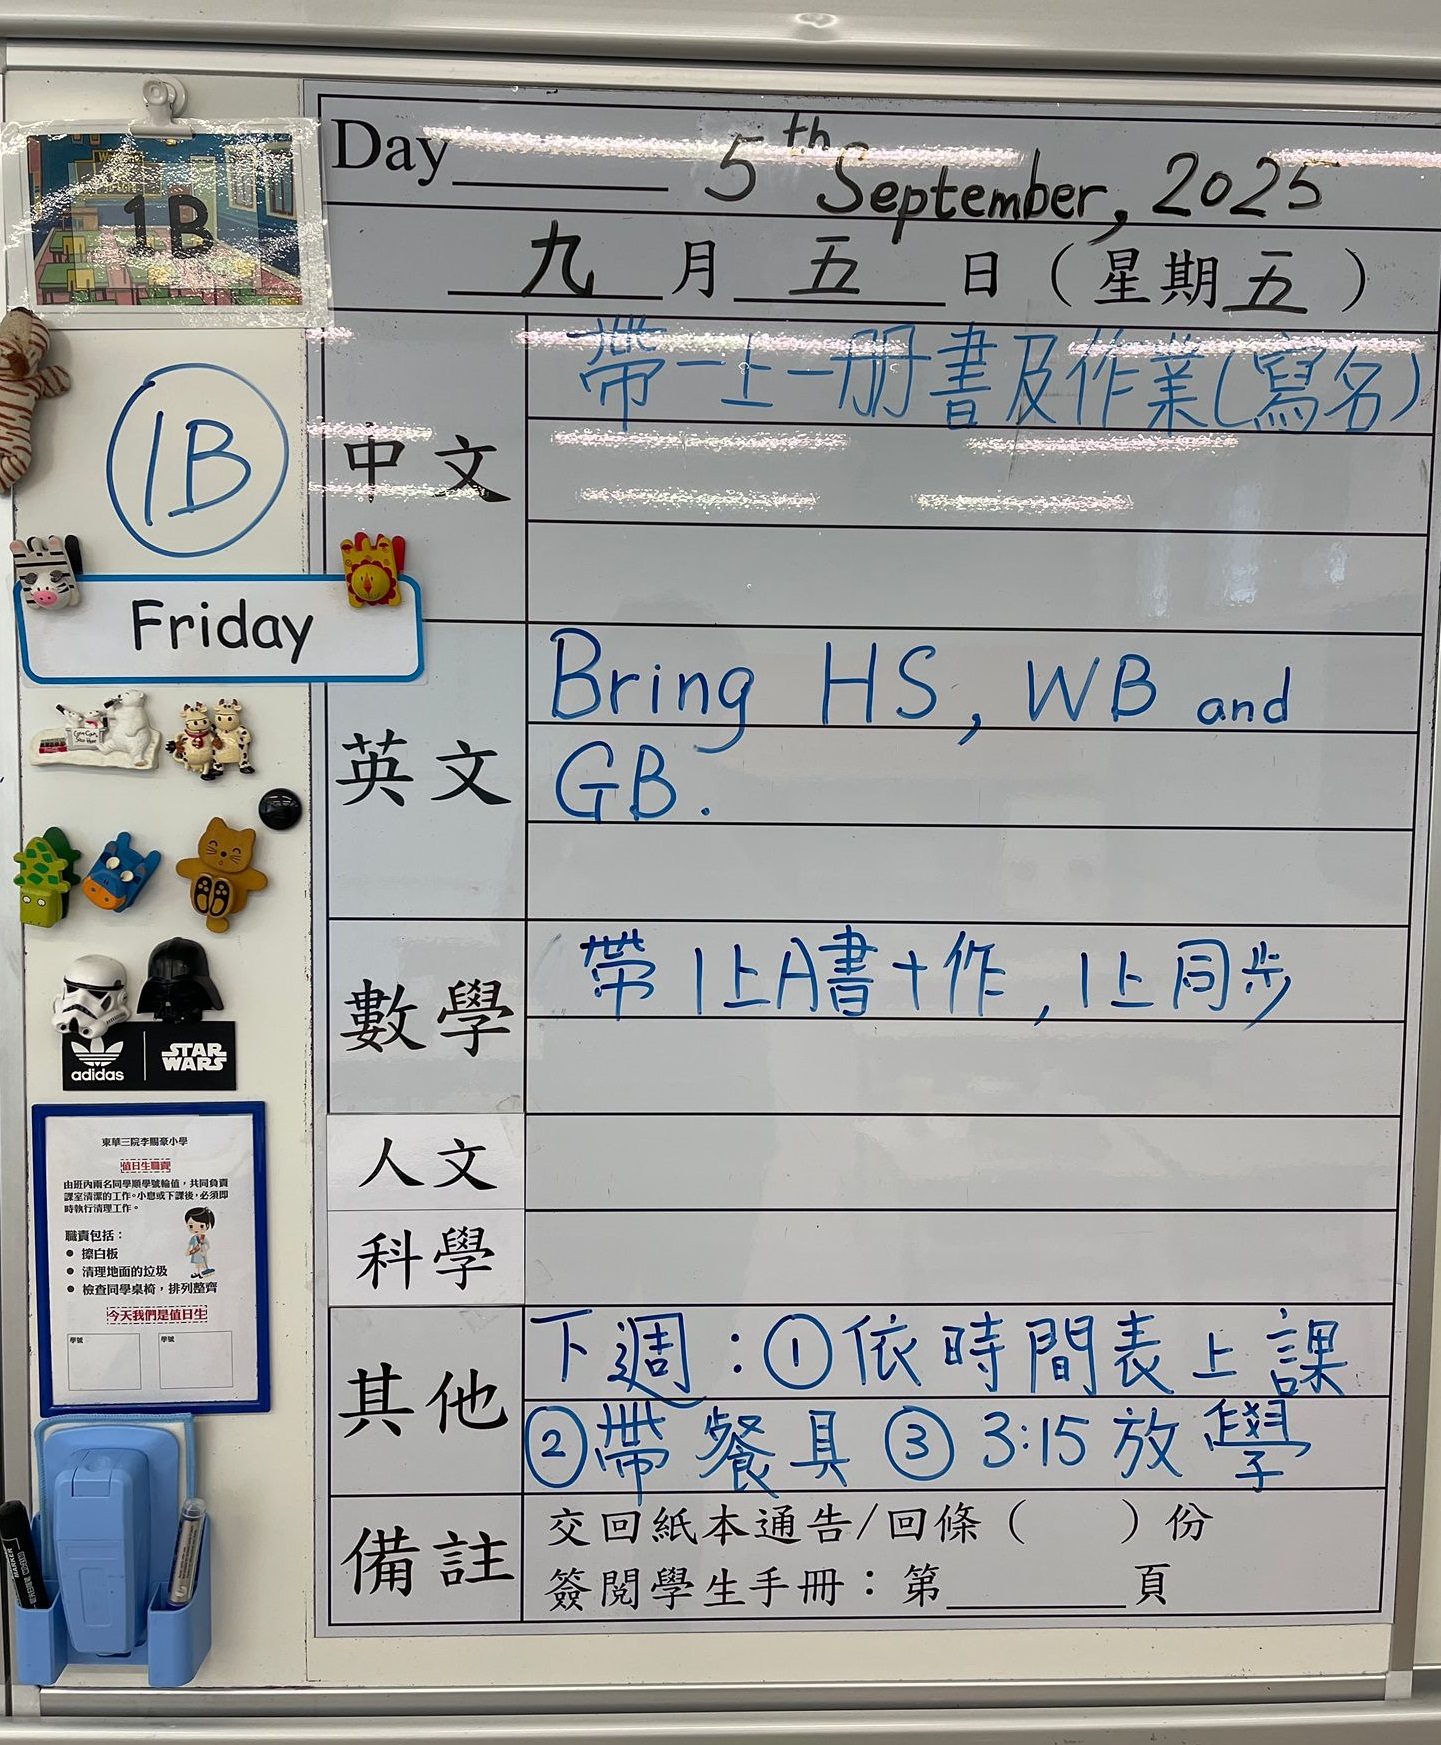 Day 5th September, 2025
九月五日（星期五）
1B
1B
Friday
中文
帶一上一册書及作業(寫名)
英文
Bring HS, WB and
GB.
數學
帶1上A書+作,1上同步
人文
科學
其他
下週:①依時間表上課
②帶餐具③3:15放學
備註
交回紙本通告/回條（ ）份
簽閱學生手冊：第頁
adidas
STAR
WARS
東華三院李賜豪小學
值日生職責
由班內兩名同學順學號輪值，共同負責
課室清潔的工作。小息或下課後，必須即
時執行清理工作。
職責包括：
● 擦白板
● 清理地面的垃圾
● 檢查同學桌椅，排列整齊
今天我們是值日生
學號
學號
MARKER